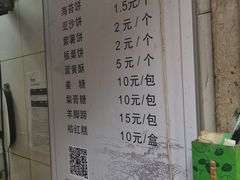 海苔饼 1.5元/个
豆沙饼 2元/个
紫薯饼 2元/个
板栗饼 2元/个
蛋黄酥 5元/个
姜糖 10元/包
梨膏糖 10元/包
羊脚蹄 15元/包
桔红糕 10元/盒